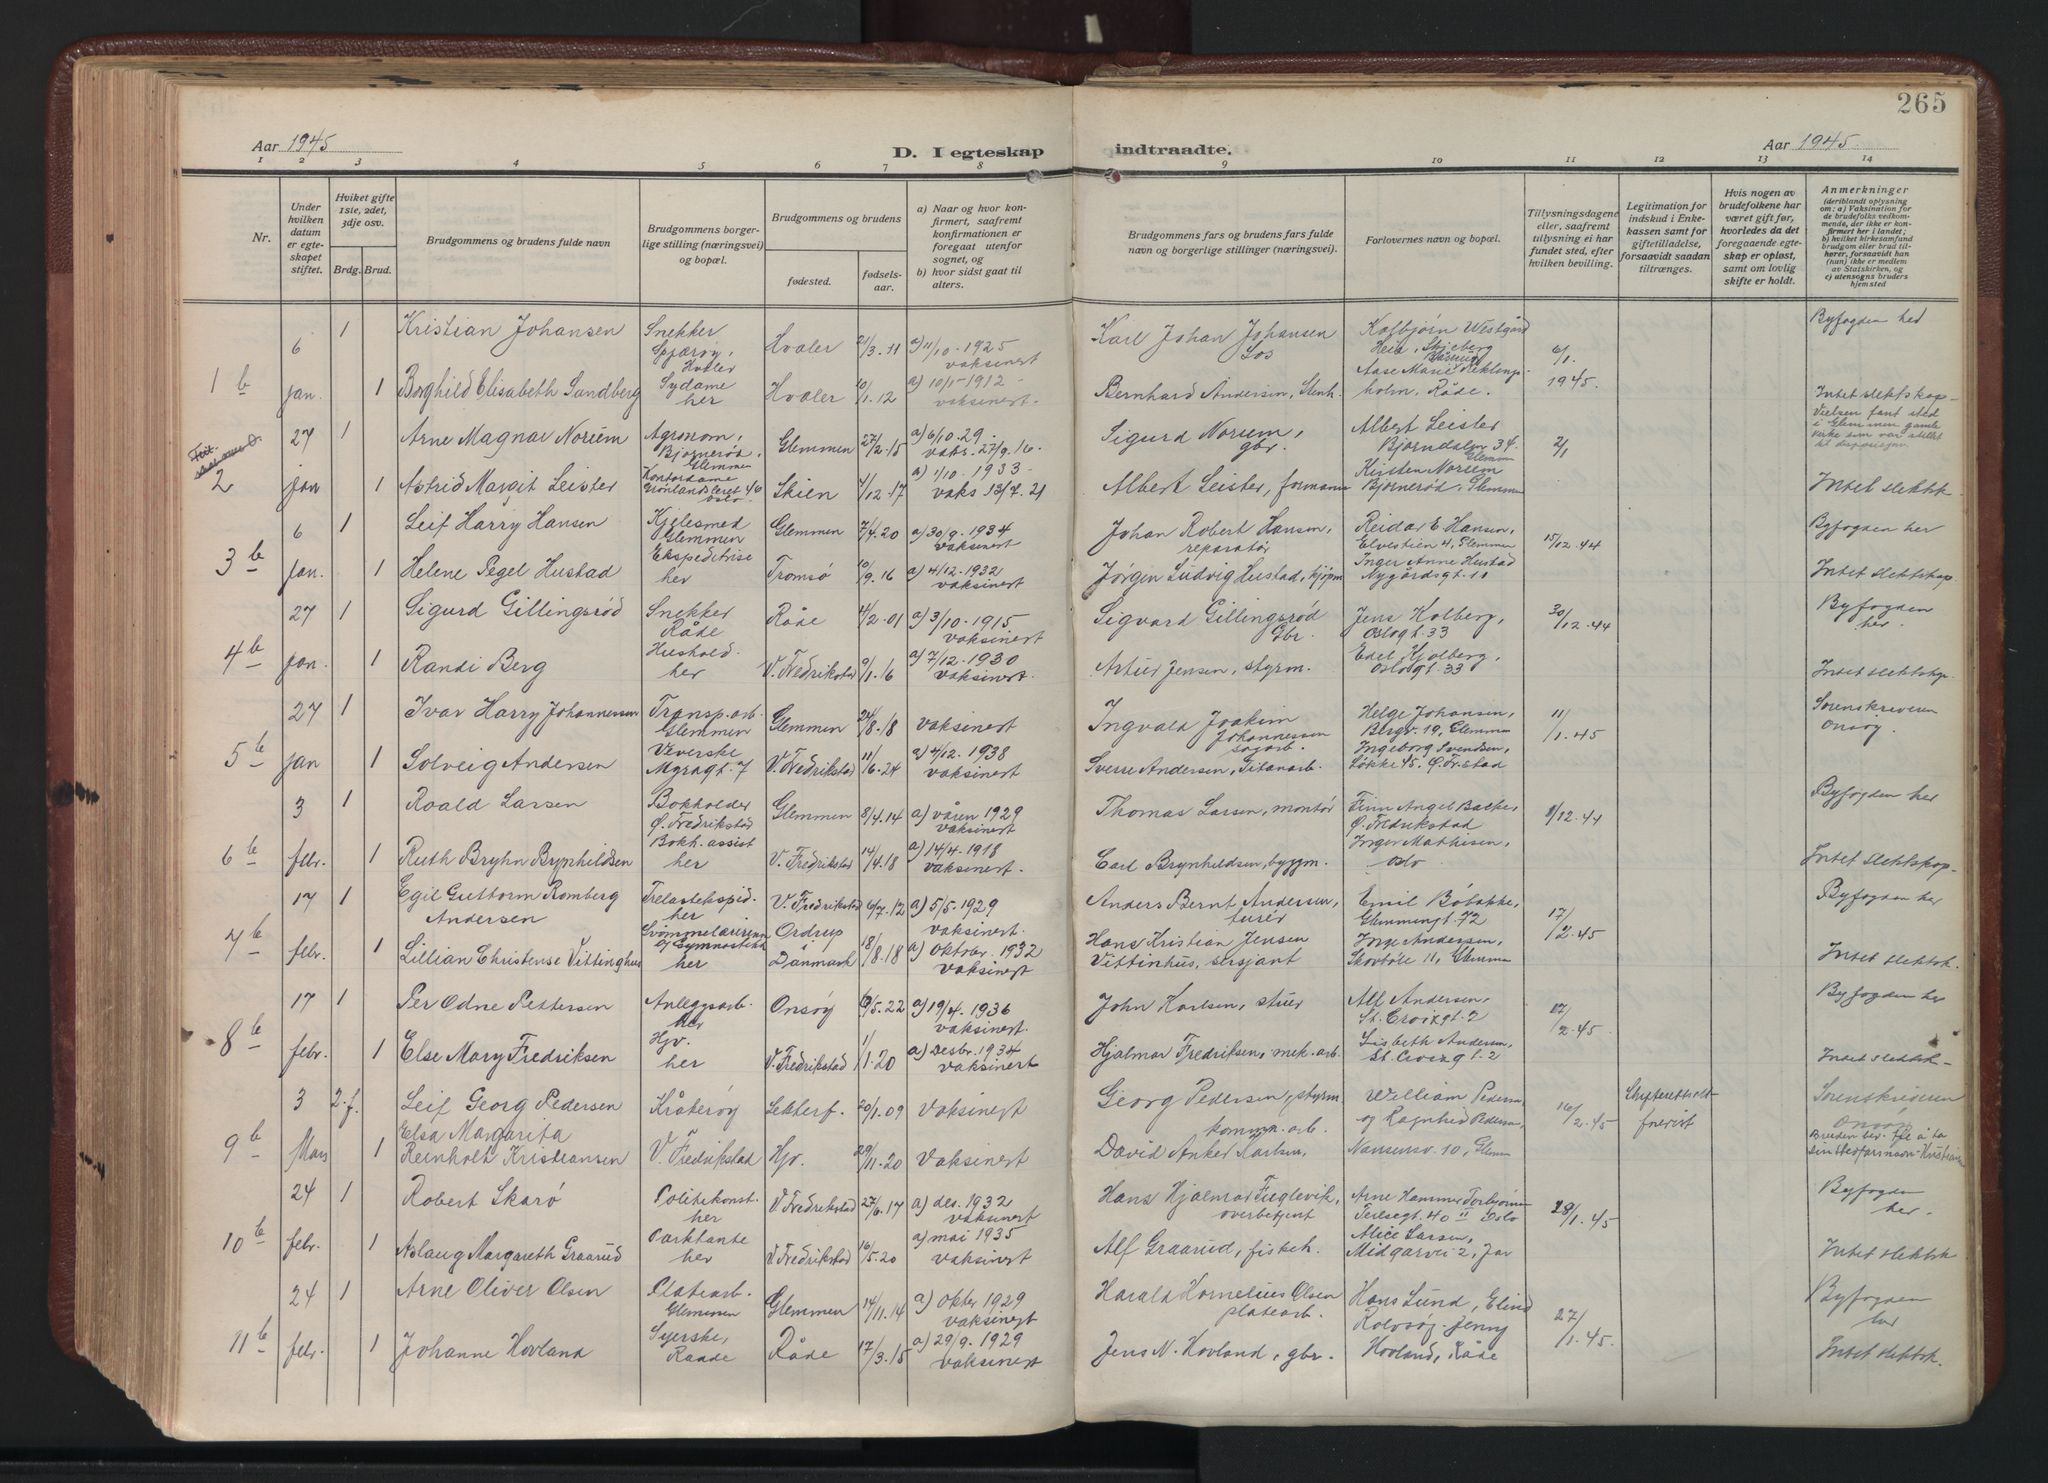 265
Aar 1945
D. I egteskap indtraadte.
Aar 1945
1 2 3 4 5 6 7 8 9 10 11 12 13 14
Nr.
Under hvilken datum er egteskapet stiftet.
Hvilket gifte 1ste, 2det, 3dje osv.
Brdg. Brud.
Brudgommens og brudens fulde navn
Brudgommens borgerlige stilling (næringsvei) og bopæl.
Brudgommens og brudens
fødested. fødselsaar.
a) Naar og hvor konfirmert, saafremt konfirmationen er foregaat utenfor sognet, og
b) hvor sidst gaat til alters.
Brudgommens fars og brudens fars fulde navn og borgerlige stillinger (næringsvei).
Forlovernes navn og bopæl.
Tillysningsdagene eller, saafremt tillysning ei har fundet sted, efter hvilken bevilling.
Legitimation for indskud i Enkekassen samt for giftetilladelse, forsaavidt saadan tiltrænges.
Hvis nogen av brudefolkene har været gift før, hvorledes da det foregaaende egteskap er opløst, samt om lovlig skifte er holdt.
Anmerkninger (deriblandt oplysning om: a) Vaksination for de brudefolks vedkommende, der ikke er konfirmert her i landet; b) hvilket kirkesamfund brudgom eller brud tilhører, forsaavidt han (hun) ikke er medlem av Statskirken, og c) utensogns bruders hjemsted
1 b 6 jan. 1 Kristian Johansen Snekker Spjærøy, Hvaler Hvaler 21/3.11 a) 11/10-1925 vaksinert Karl Johan Johansen Los Kolbjørn Westgård Heia, Skjeberg 6/1. 1945. Byfogden her
1 Borghild Elisabeth Sandberg Sydame her Hvaler 10/1.12 a) 10/1-1912 - vaksinert. Bernhard Andersen, Stenh. Aase Marie holm, Råde. Intet slektskap
2 27 jan 1 Arne Magnar Norum Agronom, Bjørnerød, Glemmen Glemmen 27/2.15 a) 6/10.29 vaks. 27/9.16. Sigurd Norum, gbr. Albert Leister Bjørndalen 34. Glemm 2/1 Vielsen fant sted i Glemmen gamle kirke som var stillet til disposisjon.
1 Astrid Margit Leister Kontordame Grønlandsleret 46 Oslo Skien 7/12.17 a) 1/10-1933 vaks 13/7.21 Albert Leister, formann Kirsten Norum Bjørnerød, Glemmen Intet slektsk.
3 b 6 jan. 1 Leif Harry Hansen Kjelesmed Glemmen Glemmen 7/4.20 a) 30/9-1934 vaksinert Johan Robert Hansen, reparatør Reidar E. Hansen, Elvestien 4, Glemmen 15/12.44 Byfogden her
1 Helene Pegel Hustad Ekspeditrise her Tromsø 10/9.16 a) 4/12.1932 vaksinert Jørgen Ludvig Hustad, kjøpm Inger Anne Hustad Nygårdsgt. 11 Intet slektskap
4 b 27 jan. 1 Sigurd Gillingsrød Snekker Råde Råde 4/2.01 a) 3/10-1915 vaksinert Sigvard Gillingsrød Gbr. Jens Kolberg, Oslogt. 33 30/12.44 Byfogden her.
1 Randi Berg Hushold. her V. Fredrikstad 9/1.16 a) 7/12.1930 vaksinert. Artur Jensen, styrm. Edel Kjolberg, Oslogt. 33 Intet slektskap.
5 b 27 jan 1 Ivar Harry Johannessen Transp.arb. Glemmen Glemmen 24/8.18 vaksinert Ingvald Joakim Johannessen sagarb. Helge Johansen, Bergv. 19, Glemmen 11/1.45 Sorenskriveren Onsøy
1 Solveig Andersen Veverske Myragt. 7 V. Fredrikstad 11/16.24 a) 4/12.1938 vaksinert Sverre Andersen, Titanarb. Ingeborg Svendsen, Løkke 45. Ø. Fr.stad
6 b 3 febr. 1 Roald Larsen Bokholder Ø. Fredrikstad Glemmen 8/4.14 a) våren 1929 vaksinert Thomas Larsen, montør Finn Angel Bache, Ø. Fredrikstad 11/12.44 Byfogden her
1 Ruth Bryhn Brynhildsen Bokh. assist her V. Fredrikstad 14/4.18 a) 14/4.1918 vaksinert. Carl Brynhildsen, byggm. Inger Mathisen, Oslo Intet slektskap.
7 b 17 febr. 1 Egil Guttorm Romberg Andersen Trelastekspid. her V. Fredrikstad 6/7.12 a) 5/5.1929 vaksinert. Anders Bernt Andersen, Emil Glemmengt. 72 17/2.45 Byfogden her
1 Lillian Christense Vittinghus Svømmelærerinne og Gymnastikk her Ordrup i Danmark 18/8.18 a) Oktober 1932 vaksinert Hans Kristian Jensen Vittinhus, sersjant Andersen, 11, Glemmen Intet slektsk.
8 b 17 febr. 1 Per Odne Pettersen Anleggsarb. her Onsøy 6/5.22 a) 19/4.1936 vaksinert. John Karlsen, stuer Alf Andersen, St. Croixgt. 2 17/2.45 Byfogden her
1 Else Mary Fredriksen Hjv. her V. Fredrikstad 1/1.20 a) Desbr. 1934 vaksinert Hjalmar Fredriksen, mek. arb. Lisbeth Andersen, St. Croixgt. 2 Intet slektsk.
9 b 3 Mars 2.f. Leif Georg Pedersen Kråkerøy Lekterf. 20/1.09 Vaksinert Georg Pedersen, styrm. William Pedersen og Ragnhild Pedersen, 16/2.45 Skifterettsatt. Sorenskriveren Onsøy
1 Elsa Margarita Reinholt Kristiansen V. Fredrikstad Hjv. 29/11.20 Vaksinert David Anker Karlsen, komm. arb. Nansensv. 10, Glemm
10 b 24 febr. 1 Robert Skarø Politikonst. her V. Fredrikstad 27/6.17 a) des. 1932 vaksinert Hans Hjalmar Fuglevik, overbetjent Arne Hammer Torbjørnsen Teresegt. 40 II Oslo 28/1.45 Byfogden her.
1 Aslaug Margareth Graarud Parktante her V. Fredrikstad 16/5.20 a) mai 1935 vaksinert Alf Graarud, fiskeh. Alice Larsen, Midgarvei 2, Jar Intet slektsk.
11 b 24 febr. 1 Arne Oliver Olsen Platearb. Glemmen Glemmen 14/11.14 a) oktbr 1929 vaksinert. Harald Kornelius Olsen platearb. Hans Lund, Rolvsøy. Jenny 27/1.45 Byfogden her
1 Johanne Hovland Syerske, Raade Råde 17/3.15 a) 29/9.1929 vaksinert Jens N. Hovland, gbr. Hovland, Råde Intet slektsk.